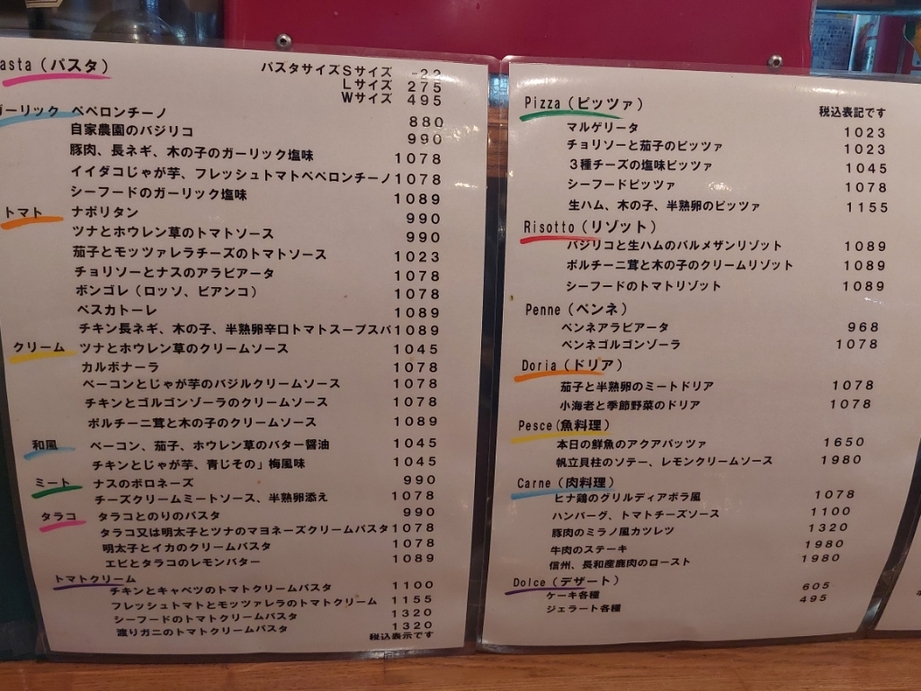 asta（パスタ）
パスタサイズSサイズ -22
Lサイズ 275
Wサイズ 495
ガーリック ペペロンチーノ 880
自家農園のバジリコ 990
豚肉、長ネギ、木の子のガーリック塩味 1078
イイダコじゃが芋、フレッシュトマトペペロンチーノ 1078
シーフードのガーリック塩味 1089
トマト ナポリタン 990
ツナとホウレン草のトマトソース 990
茄子とモッツァレラチーズのトマトソース 1023
チョリソーとナスのアラビアータ 1078
ボンゴレ（ロッソ、ビアンコ） 1078
ペスカトーレ 1089
チキン長ネギ、木の子、半熟卵辛口トマトスープスパ 1089
クリーム ツナとホウレン草のクリームソース 1045
カルボナーラ 1078
ベーコンとじゃが芋のバジルクリームソース 1078
チキンとゴルゴンゾーラのクリームソース 1078
ポルチーニ茸と木の子のクリームソース 1089
和風 ベーコン、茄子、ホウレン草のバター醤油 1045
チキンとじゃが芋、青じその」梅風味 1045
ミート ナスのボロネーズ 990
チーズクリームミートソース、半熟卵添え 1078
タラコ タラコとのりのパスタ 990
タラコ又は明太子とツナのマヨネーズクリームパスタ 1078
明太子とイカのクリームパスタ 1078
エビとタラコのレモンバター 1089
トマトクリーム
チキンとキャベツのトマトクリームパスタ 1100
フレッシュトマトとモッツァレラのトマトクリーム 1155
シーフードのトマトクリームパスタ 1320
渡りガニのトマトクリームパスタ 1320
税込表示です
Pizza（ピッツァ）
税込表記です
マルゲリータ 1023
チョリソーと茄子のピッツァ 1023
3種チーズの塩味ピッツァ 1045
シーフードピッツァ 1078
生ハム、木の子、半熟卵のピッツァ 1155
Risotto（リゾット）
バジリコと生ハムのパルメザンリゾット 1089
ポルチーニ茸と木の子のクリームリゾット 1089
シーフードのトマトリゾット 1089
Penne（ペンネ）
ペンネアラビアータ 968
ペンネゴルゴンゾーラ 1078
Doria（ドリア）
茄子と半熟卵のミートドリア 1078
小海老と季節野菜のドリア 1078
Pesce（魚料理）
本日の鮮魚のアクアパッツァ 1650
帆立貝柱のソテー、レモンクリームソース 1980
Carne（肉料理）
ヒナ鶏のグリルディアボラ風 1078
ハンバーグ、トマトチーズソース 1100
豚肉のミラノ風カツレツ 1320
牛肉のステーキ 1980
信州、長和産鹿肉のロースト 1980
Dolce（デザート）
ケーキ各種 605
ジェラート各種 495